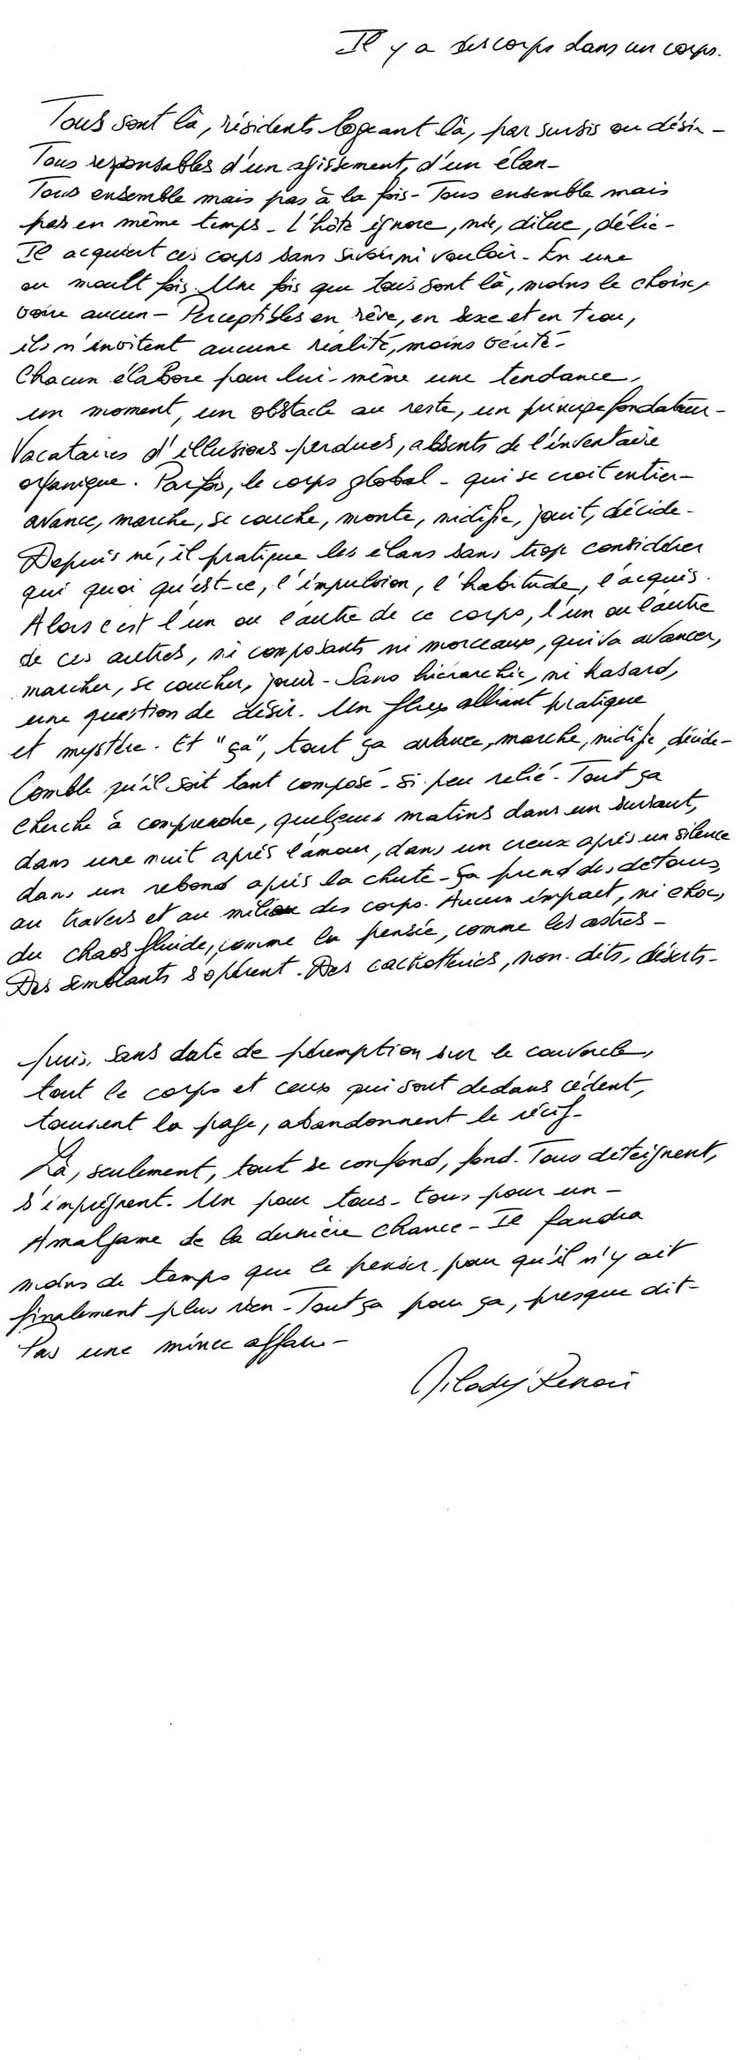 Il y a des corps dans un corps.
Tous sont là, résidents logeant là, par sursis ou désir -
Tous responsables d'un agissement, d'un élan -
Tous ensemble mais pas à la fois - Tous ensemble mais
pas en même temps - L'hôte ignore, nie, dilue, délie -
Il acquiert ces corps sans savoir ni vouloir - En une
ou moult fois. Une fois que tous sont là, moins le choix,
voire aucun - Perceptibles en rêve, en sexe et en trou,
ils n'invitent aucune réalité, moins vérité -
Chacun élabore pour lui-même une tendance,
un moment, un obstacle au reste, un principe fondateur -
Vacataires d'illusions perdues, absents de l'inventaire
organique. Parfois, le corps global - qui se croit entier -
avance, marche, se couche, monte, nidifie, jouit, décide -
Depuis né, il pratique les élans sans trop considérer
qui quoi qu'est-ce, l'impulsion, l'habitude, l'acquis.
Alors c'est l'un ou l'autre de ce corps, l'un ou l'autre
de ces autres, ni composants ni morceaux, qui va avancer,
marcher, se coucher, jouir - Sans hiérarchie, ni hasard,
une question de désir. Un flux alliant pratique
et mystère. Et "ça", tout ça avance, marche, nidifie, décide -
Comble qu'il soit tant composé - si peu relié - Tout ça
cherche à comprendre, quelques matins dans un sursaut,
dans une nuit après l'amour, dans un creux après un silence
dans un rebond après la chute - ça prend des détours,
au travers et au milieu des corps. Aucun impact, ni choc,
du chaos fluide, comme la pensée, comme les astres -
Des semblants s'opèrent. Des cachotteries, non-dits, déserts -
puis, sans date de péremption sur le couvercle,
tout le corps et ceux qui sont dedans cèdent,
tournent la page, abandonnent le récif -
Là, seulement, tout se confond, fond. Tous déteignent,
s'imprègnent. Un pour tous - tous pour un -
Amalgame de la dernière chance - Il faudra
moins de temps que le penser, pour qu'il n'y ait
finalement plus rien - Tout ça pour ça, presque dit -
Pas une mince affaire -
Milady Renoir